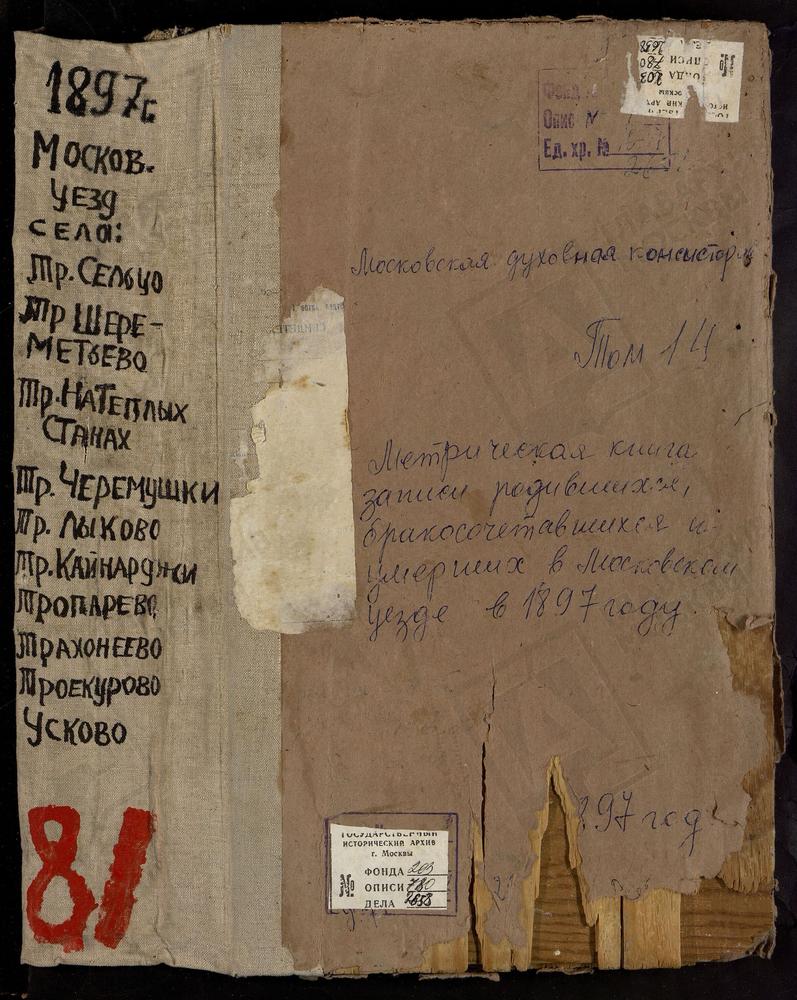 1897г
МОСКОВ.
УЕЗД
СЕЛА:
ТР. СЕЛЬЦО
ТР ШЕРЕ-
МЕТЬЕВО
ТР. НА ТЕПЛЫХ
СТАНАХ
ТР. ЧЕРЕМУШКИ
ТР. ЛЫКОВО
ТР. КАЙНАРДЖИ
ТРОПАРЕВО
ТРАХОНЕЕВО
ТРОЕКУРОВО
УСКОВО
81
ФОНДА 203
ОПИСИ 780
2658
№
Фонд
Опис №
Ед. хр. №
Московская духовная консистория
Том 14
Метрическая книга
записи родившихся,
бракосочетавшихся и
умерших в Московском
уезде в 1897 году.
897 год
ГОСУДАРСТВЕННЫЙ
ИСТОРИЧЕСКИЙ АРХИВ
г. Москвы
ФОНДА 203
№ ОПИСИ 780
ДЕЛА 2658